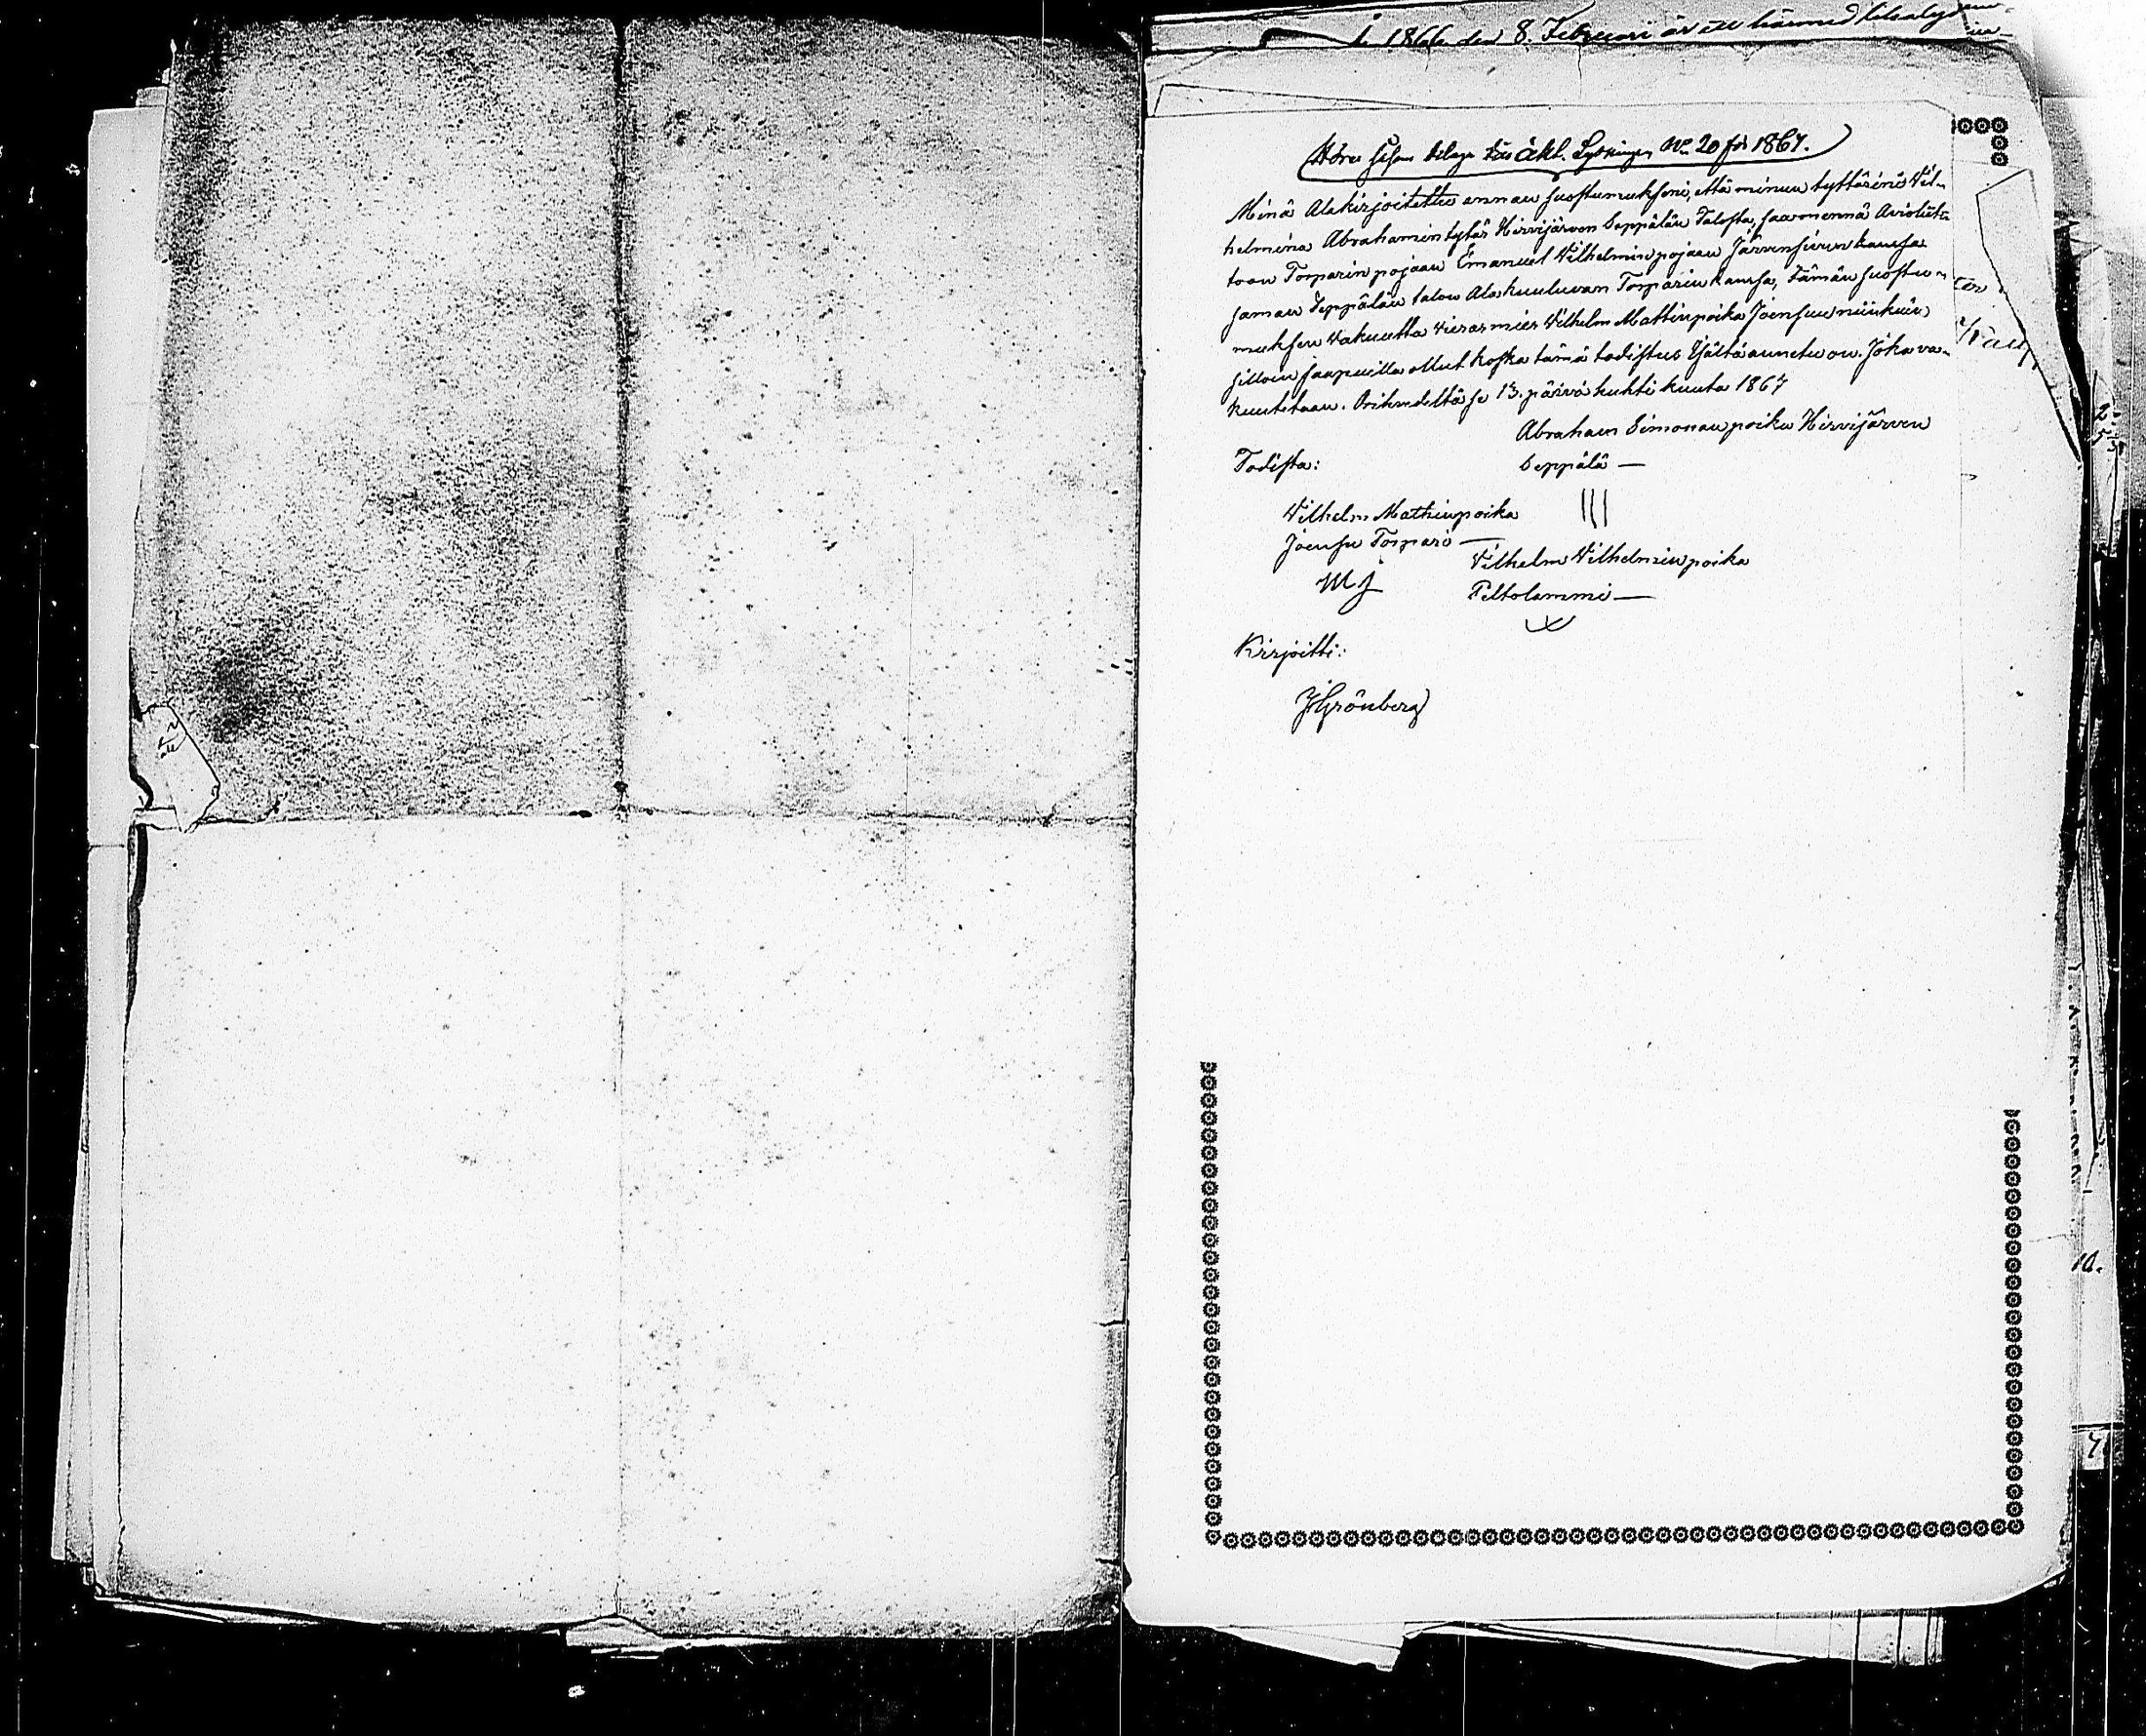 1866 den 8. Februari är ett härmed
Hörer såsom bilaga till äkt. Lysningen No 20 för 1867.
Minä Alakirjoitettu annan suostumukseni, että minun tyttäreni Vil-
helmina Abrahamintytär Hirvijärven Seppälän Talosta, saa mennä Avioliit-
toon Torparin pojaan Emanuel Vilhelmin pojaan Järvensivun kanssa
saman Seppälän talon Alakuuluvan Torparin kanssa, Tämän suostu-
muksen Vakuutta Vieras mies Vilhelm Mattinpoika Joensuu niinkuin
silloin saapuvilla ollut koska tämä todistus Ysältä annetu on. Joka va-
kuutetaan. Orihvedeltä se 13. päivä huhti kuuta 1867
Abraham Simonan poika Hirvijärven
Seppälä —
Todista:
Vilhelm Mathinpoika
Joensu Torpari —
M J
Vilhelm Vilhelmin poika
Peltolammi —
Kirjoitti:
J Grönberg
10.